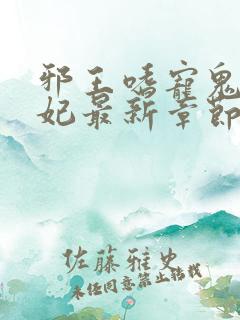 邪王嗜宠鬼
妃最新章節
佐藤雅史
未经同意禁止转载